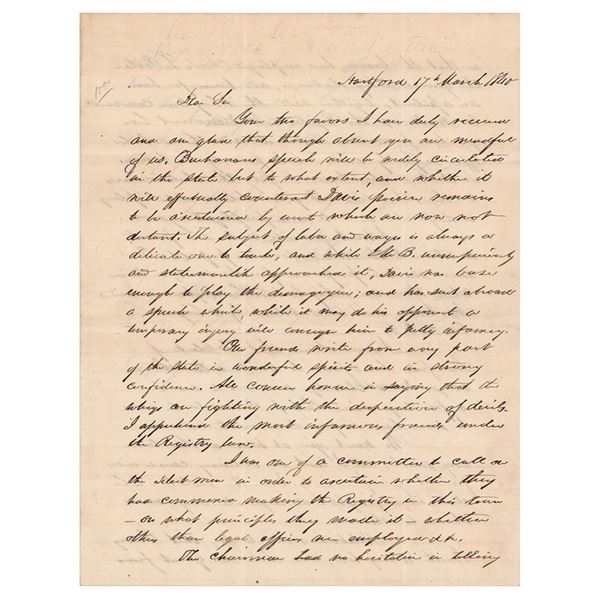 Hartford 17th March 1840
Dear Sir
Your two favors I have duly received
and am glad that though absent you are mindful
of us. Buchanans speech will be widely circulated
in the state but to what extent, and whether it
will effectually counteract Davis' remains
to be ascertained by events which are now not
distant. The subject of labor and wages is always a
delicate one to touch, and while Mr B.
and statesmanlike approached it, Davis was base
enough to play the demagogue; and has sent abroad
a speech which, while it may do his opponent a
temporary injury will consign him to petty infamy.
Our friends write from every part
of the state in wonderful spirits and in strong
confidence. All concur however in saying that the
whigs are fighting with the desperation of devils.
I apprehend the most infamous frauds under
the Registry law.
I was one of a committee to call on
the select men in order to ascertain whether they
had commenced making the Registry in this town
– on what principles they made it – whether
other than legal officers are employed &c.
The chairman had no hesitation in telling